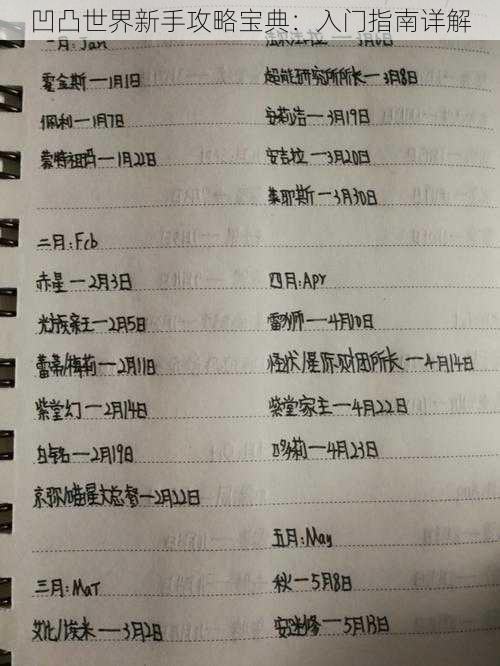 凹凸世界新手攻略宝典：入门指南详解
一月：Jan
霍金斯—1月1日
佩利—1月7日
蒙特祖玛—1月22日
二月：Feb
赤星—2月3日
光族亲王—2月5日
蕾蒂/梅莉—2月11日
紫堂幻—2月14日
2月19日
京弥/喵星大总督—2月22日
三月：Mar
艾比/埃米—3月2日
3月6日
超能研究所所长—3月8日
安莉洁—3月19日
安吉拉—3月20日
莱耶斯—3月30日
四月：Apr
雷狮—4月10日
怪伏/星际财团所长—4月14日
紫堂家主—4月22日
4月23日
五月：May
秋—5月8日
安迷修—5月13日